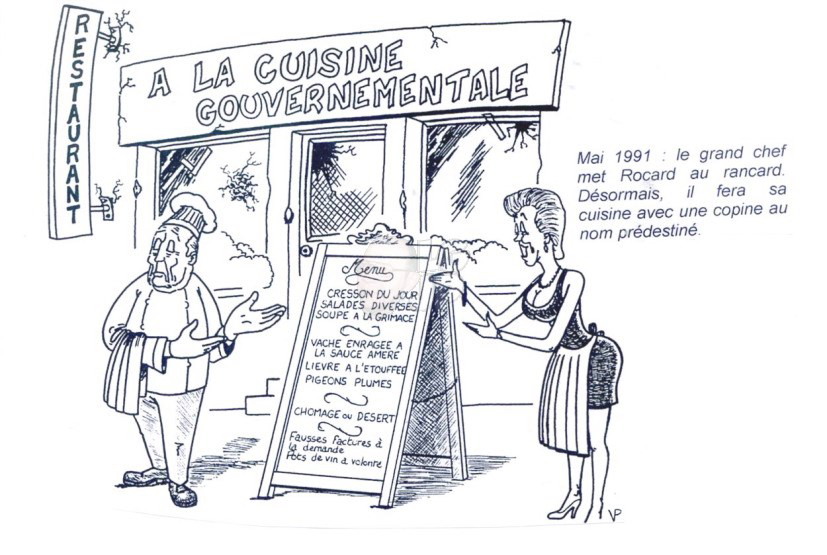 RESTAURANT
A LA CUISINE
GOUVERNEMENTALE
Mai 1991 : le grand chef
met Rocard au rancard.
Désormais, il fera sa
cuisine avec une copine au
nom prédestiné.
Menu
CRESSON DU JOUR
SALADES DIVERSES
SOUPE A LA GRIMACE
VACHE ENRAGEE A
LA SAUCE AMERE
LIEVRE A L'ETOUFFEE
PIGEONS PLUMES
CHOMAGE OU DESERT
Fausses factures à
la demande
Pots de vin à volonté
VP